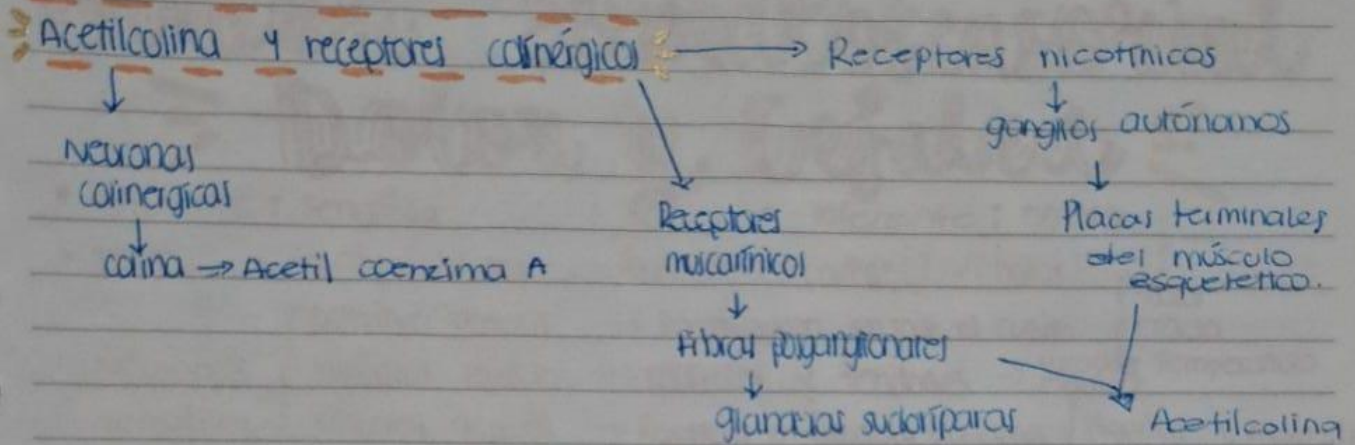 Acetilcolina y receptores colinérgicos → Receptores nicotínicos
↓
ganglios autónomos
↓
Placas terminales
del músculo
esqueletico.
Neuronas
colinergicas
↓
colina → Acetil coenzima A
Receptores
muscarínicos
↓
Fibras posganglionares
↓
glandulas sudoríparas
Acetilcolina